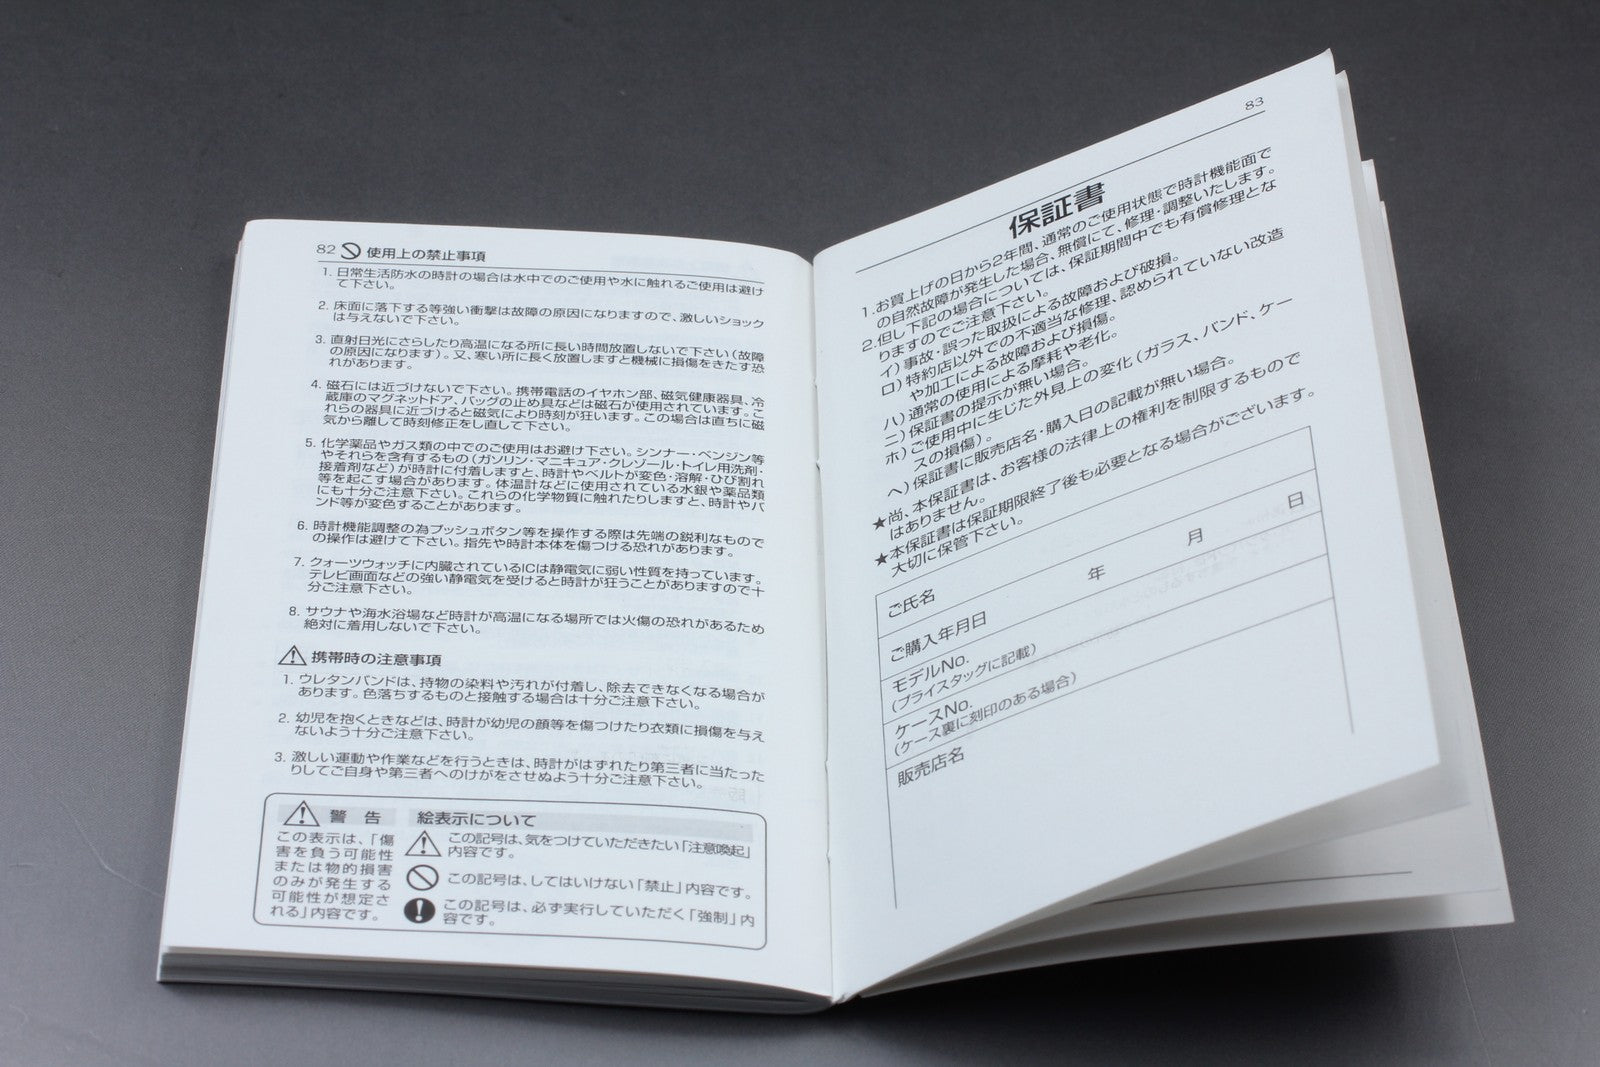 82 使用上の禁止事項
1. 日常生活防水の時計の場合は水中でのご使用や水に触れるご使用は避け
て下さい。
2. 床面に落下する等強い衝撃は故障の原因になりますので、激しいショック
は与えないで下さい。
3. 直射日光にさらしたり高温になる所に長い時間放置しないで下さい(故障
の原因になります)。又、寒い所に長く放置しますと機械に損傷をきたす恐
れがあります。
4. 磁石には近づけないで下さい。携帯電話のイヤホン部、磁気健康器具、冷
蔵庫のマグネットドア、バッグの止め具などは磁石が使用されています。こ
れらの器具に近づけると磁気により時刻が狂います。この場合は直ちに磁
気から離して時刻修正をし直して下さい。
5. 化学薬品やガス類の中でのご使用はお避け下さい。シンナー・ベンジン等
やそれらを含有するもの(ガソリン・マニキュア・クレゾール・トイレ用洗剤・
接着剤など)が時計に付着しますと、時計やベルトが変色・溶解・ひび割れ
等を起こす場合があります。体温計などに使用されている水銀や薬品類
にも十分ご注意下さい。これらの化学物質に触れたりしますと、時計やバ
ンド等が変色することがあります。
6. 時計機能調整の為プッシュボタン等を操作する際は先端の鋭利なもので
の操作は避けて下さい。指先や時計本体を傷つける恐れがあります。
7. クォーツウォッチに内臓されているICは静電気に弱い性質を持っています。
テレビ画面などの強い静電気を受けると時計が狂うことがありますので十
分ご注意下さい。
8. サウナや海水浴場など時計が高温になる場所では火傷の恐れがあるため
絶対に着用しないで下さい。
携帯時の注意事項
1. ウレタンバンドは、持物の染料や汚れが付着し、除去できなくなる場合が
あります。色落ちするものと接触する場合は十分ご注意下さい。
2. 幼児を抱くときなどは、時計が幼児の顔等を傷つけたり衣類に損傷を与え
ないよう十分ご注意下さい。
3. 激しい運動や作業などを行うときは、時計がはずれたり第三者に当たった
りしてご自身や第三者へのけがをさせぬよう十分ご注意下さい。
警 告
この表示は、「傷
害を負う可能性
または物的損害
のみが発生する
可能性が想定さ
れる」内容です。
絵表示について
この記号は、気をつけていただきたい「注意喚起」
内容です。
この記号は、してはいけない「禁止」内容です。
この記号は、必ず実行していただく「強制」内
容です。
83
保証書
1.お買上げの日から2年間、通常のご使用状態で時計機能面で
の自然故障が発生した場合、無償にて、修理・調整いたします。
2.但し下記の場合については、保証期間中でも有償修理とな
りますのでご注意下さい。
イ)事故・誤った取扱による故障および破損。
ロ)特約店以外での不適当な修理、認められていない改造
や加工による故障および損傷。
ハ)通常の使用による摩耗や老化。
ニ)保証書の提示が無い場合。
ホ)ご使用中に生じた外見上の変化(ガラス、バンド、ケー
スの損傷)。
ヘ)保証書に販売店名・購入日の記載が無い場合。
★尚、本保証書は、お客様の法律上の権利を制限するもので
はありません。
★本保証書は保証期限終了後も必要となる場合がございます。
大切に保管下さい。
ご氏名
ご購入年月日 年 月 日
モデルNo.
(プライスタッグに記載)
ケースNo.
(ケース裏に刻印のある場合)
販売店名